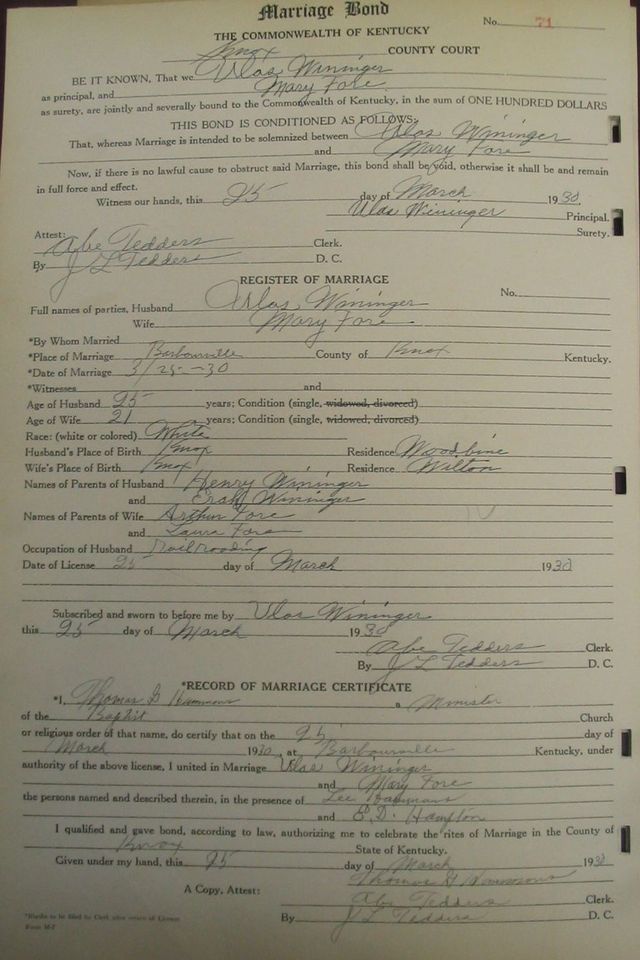 Marriage Bond
No. 71
THE COMMONWEALTH OF KENTUCKY
Knox COUNTY COURT
BE IT KNOWN, That we Ulas Wininger
as principal, and Mary Fore
as surety, are jointly and severally bound to the Commonwealth of Kentucky, in the sum of ONE HUNDRED DOLLARS
THIS BOND IS CONDITIONED AS FOLLOWS:
That, whereas Marriage is intended to be solemnized between Ulas Wininger
and Mary Fore
Now, if there is no lawful cause to obstruct said Marriage, this bond shall be void, otherwise it shall be and remain
in full force and effect.
Witness our hands, this 25 day of March 1930.
Ulas Wininger Principal.
Surety.
Attest:
Abe Tedders Clerk.
By J L Tedders D. C.
REGISTER OF MARRIAGE
No.
Full names of parties, Husband Ulas Wininger
Wife Mary Fore
*By Whom Married
*Place of Marriage Barbourville County of Knox Kentucky.
*Date of Marriage 3/25-30
*Witnesses and
Age of Husband 25 years; Condition (single, widowed, divorced)
Age of Wife 21 years; Condition (single, widowed, divorced)
Race: (white or colored) White
Husband's Place of Birth Knox Residence Woodbine
Wife's Place of Birth Knox Residence Wilton
Names of Parents of Husband Henry Wininger
and Wininger
Names of Parents of Wife Arthur Fore
and Laura Fore
Occupation of Husband Railroading
Date of License 25 day of March 1930
Subscribed and sworn to before me by Ulas Wininger
this 25 day of March 1930
Abe Tedders Clerk.
By J L Tedders D. C.
*RECORD OF MARRIAGE CERTIFICATE
*I, Thomas Hammons a Minister
of the Baptist Church
or religious order of that name, do certify that on the 25 day of
March 1930, at Barbourville Kentucky, under
authority of the above license, I united in Marriage Ulas Wininger
and Mary Fore
the persons named and described therein, in the presence of Lee Hammons
and E.D. Hampton
I qualified and gave bond, according to law, authorizing me to celebrate the rites of Marriage in the County of
Knox State of Kentucky.
Given under my hand, this 25 day of March 1930
Thomas Hammons
A Copy, Attest: Abe Tedders Clerk.
By J L Tedders D. C.
*Blanks to be filled by Clerk after return of License